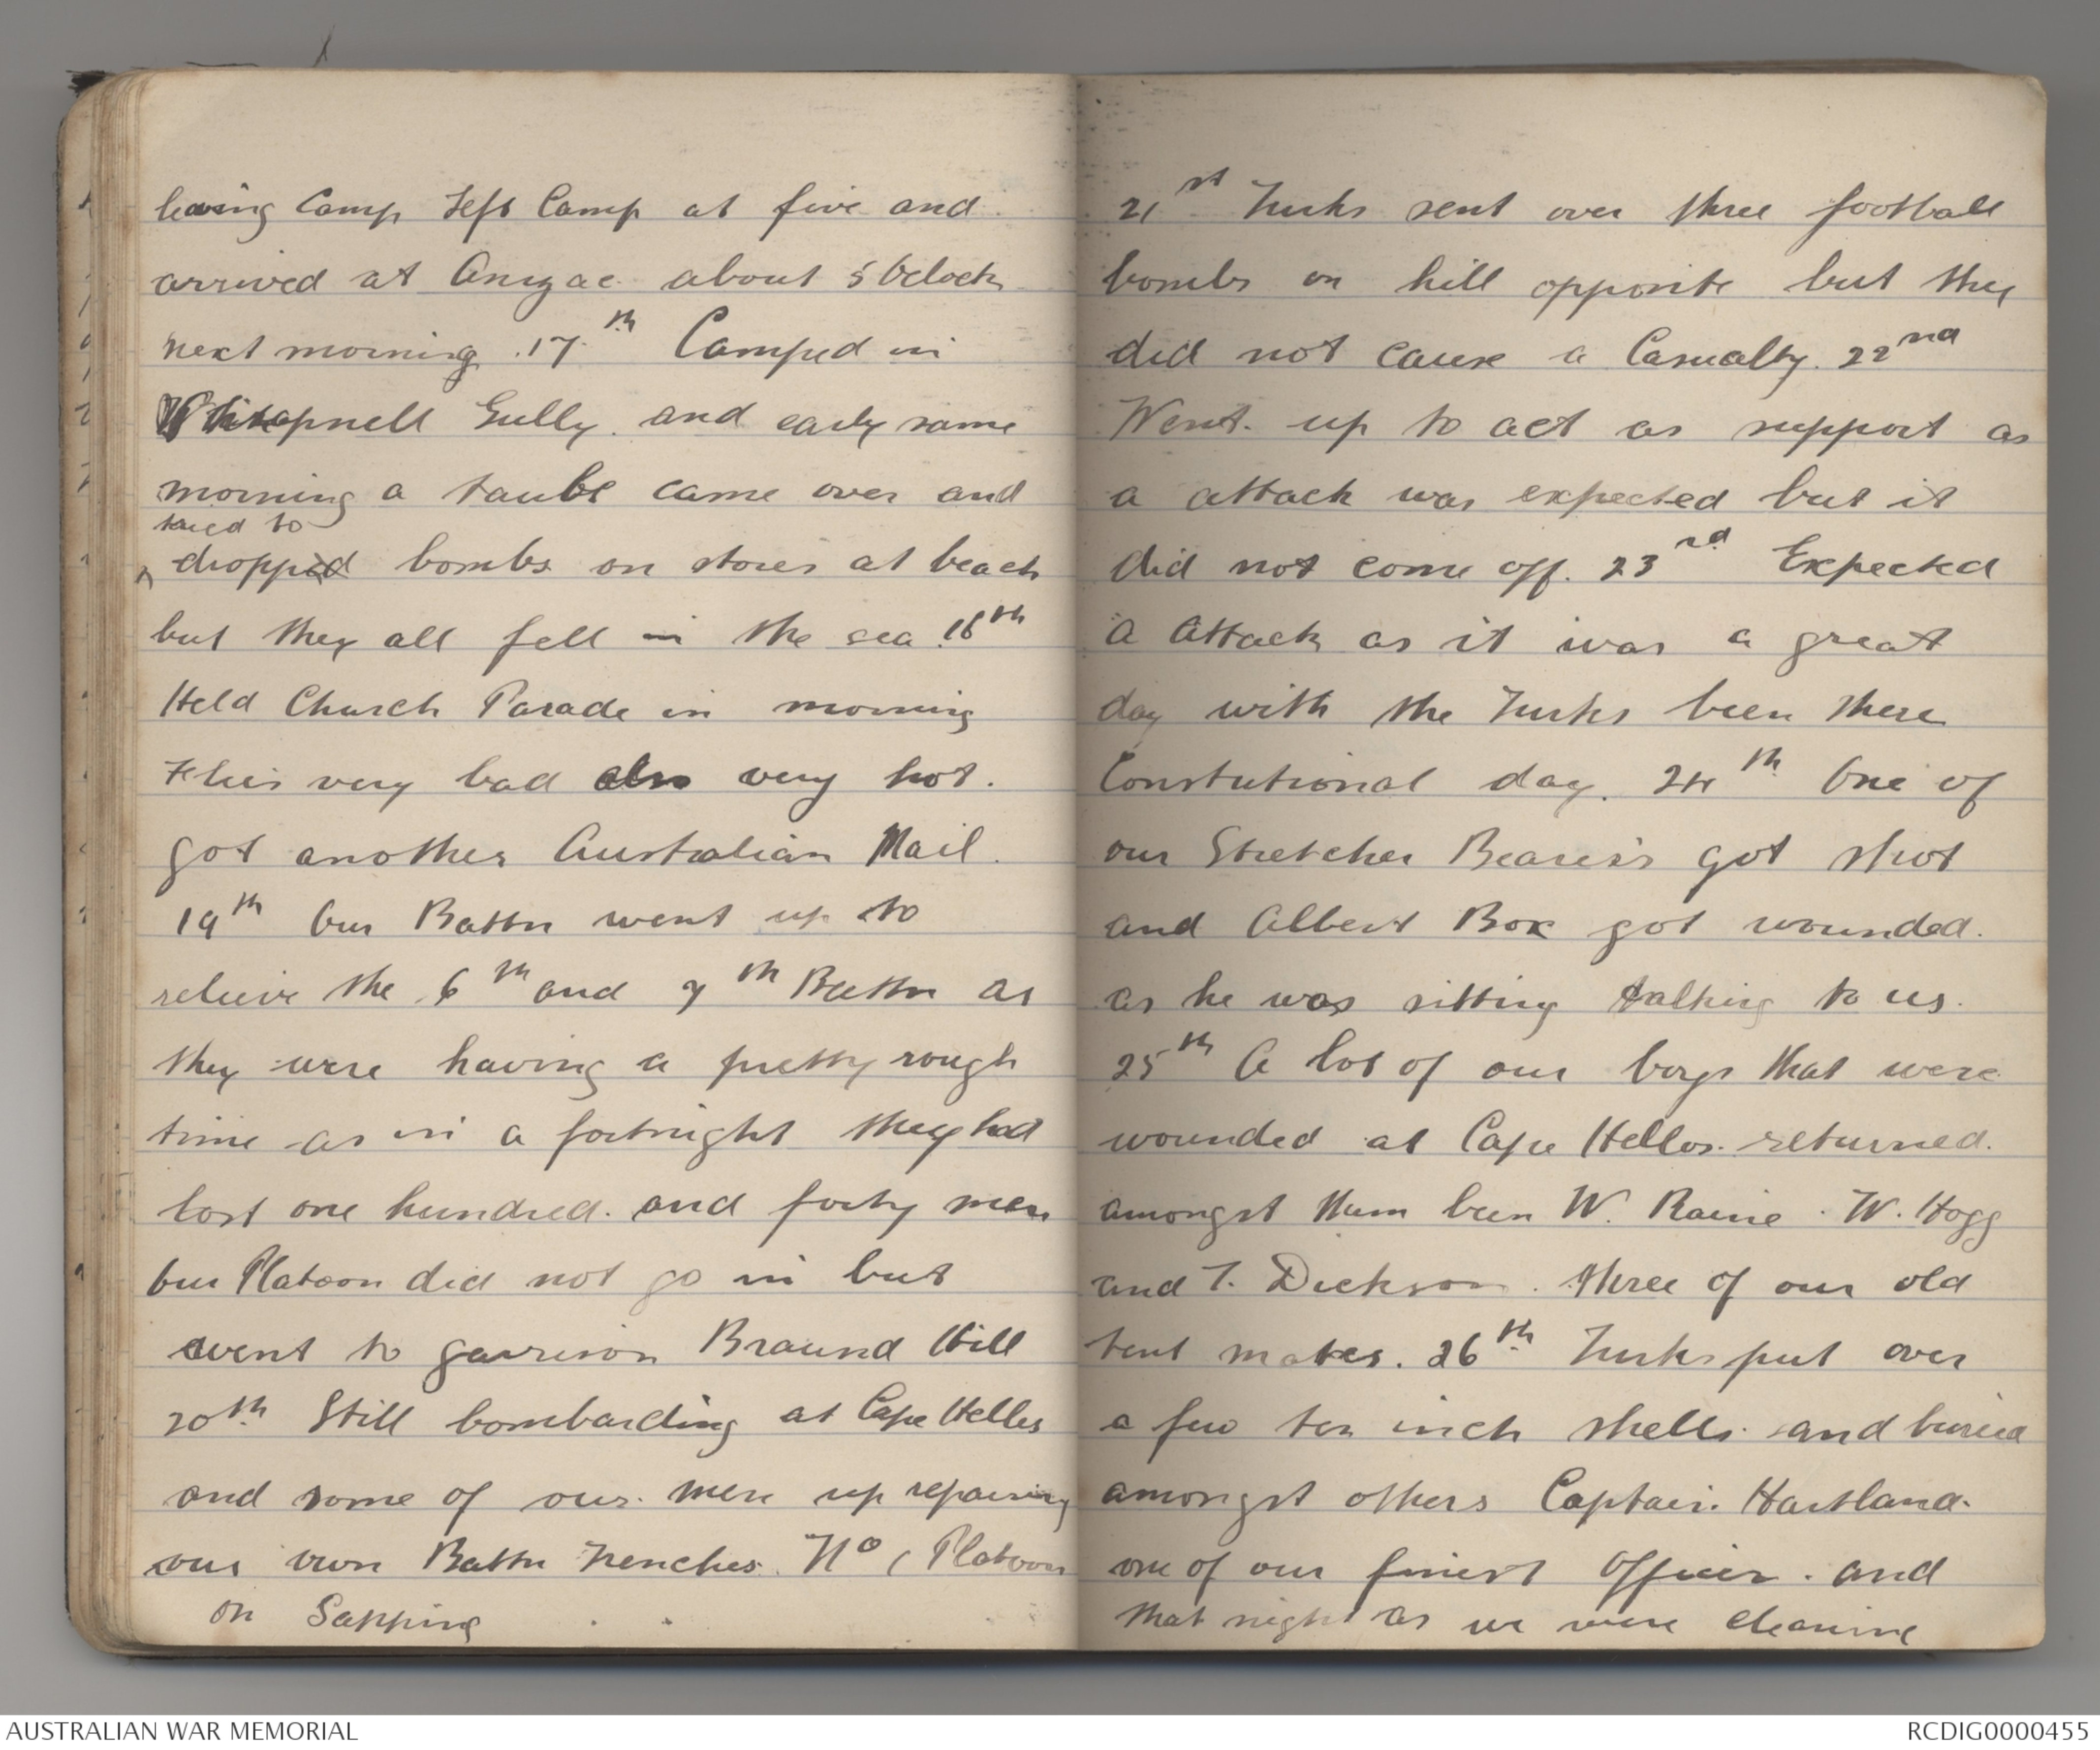 leaving Camp Left Camp at five and
arrived at Anzac about 5 Oclock
next morning. 17th Camped in
Shrapnell Gully. and early same
morning a taube came over and
tried to
dropped bombs on stores at beach
but they all fell in the sea. 18th
Held Church Parade in morning
Flies very bad also very hot.
got another Australian Mail.
19th Our Battn went up to
relieve the 6th and 7th Battn as
they were having a pretty rough
time as in a fortnight they had
lost one hundred. and forty men
Our Platoon did not go in but
went to garrison Braund Hill
20th Still bombarding at Cape Helles
and some of our men up repairing
our own Battn Trenches. No 1 Platoon
on Sapping
21st Turks sent over three football
bombs on hill opposite but they
did not cause a Casualty. 22nd
Went up to act as support as
a attack was expected but it
did not come off. 23rd Expected
a Attack as it was a great
day with the Turks been there
Constutional day. 24th One of
our Stretcher Bearers got shot
and Albert Box got wounded.
as he was sitting talking to us.
25th A lot of our boys that were
wounded at Cape Helles. returned.
amongst them been W. Raine. W. Hogg
and T. Dickson. three of our old
tent mates. 26th Turks put over
a few ten inch shells. and buried
amongst others Captain. Hartland.
one of our finest Officer. and
that night as we were cleaning
AUSTRALIAN WAR MEMORIAL
RCDIG0000455